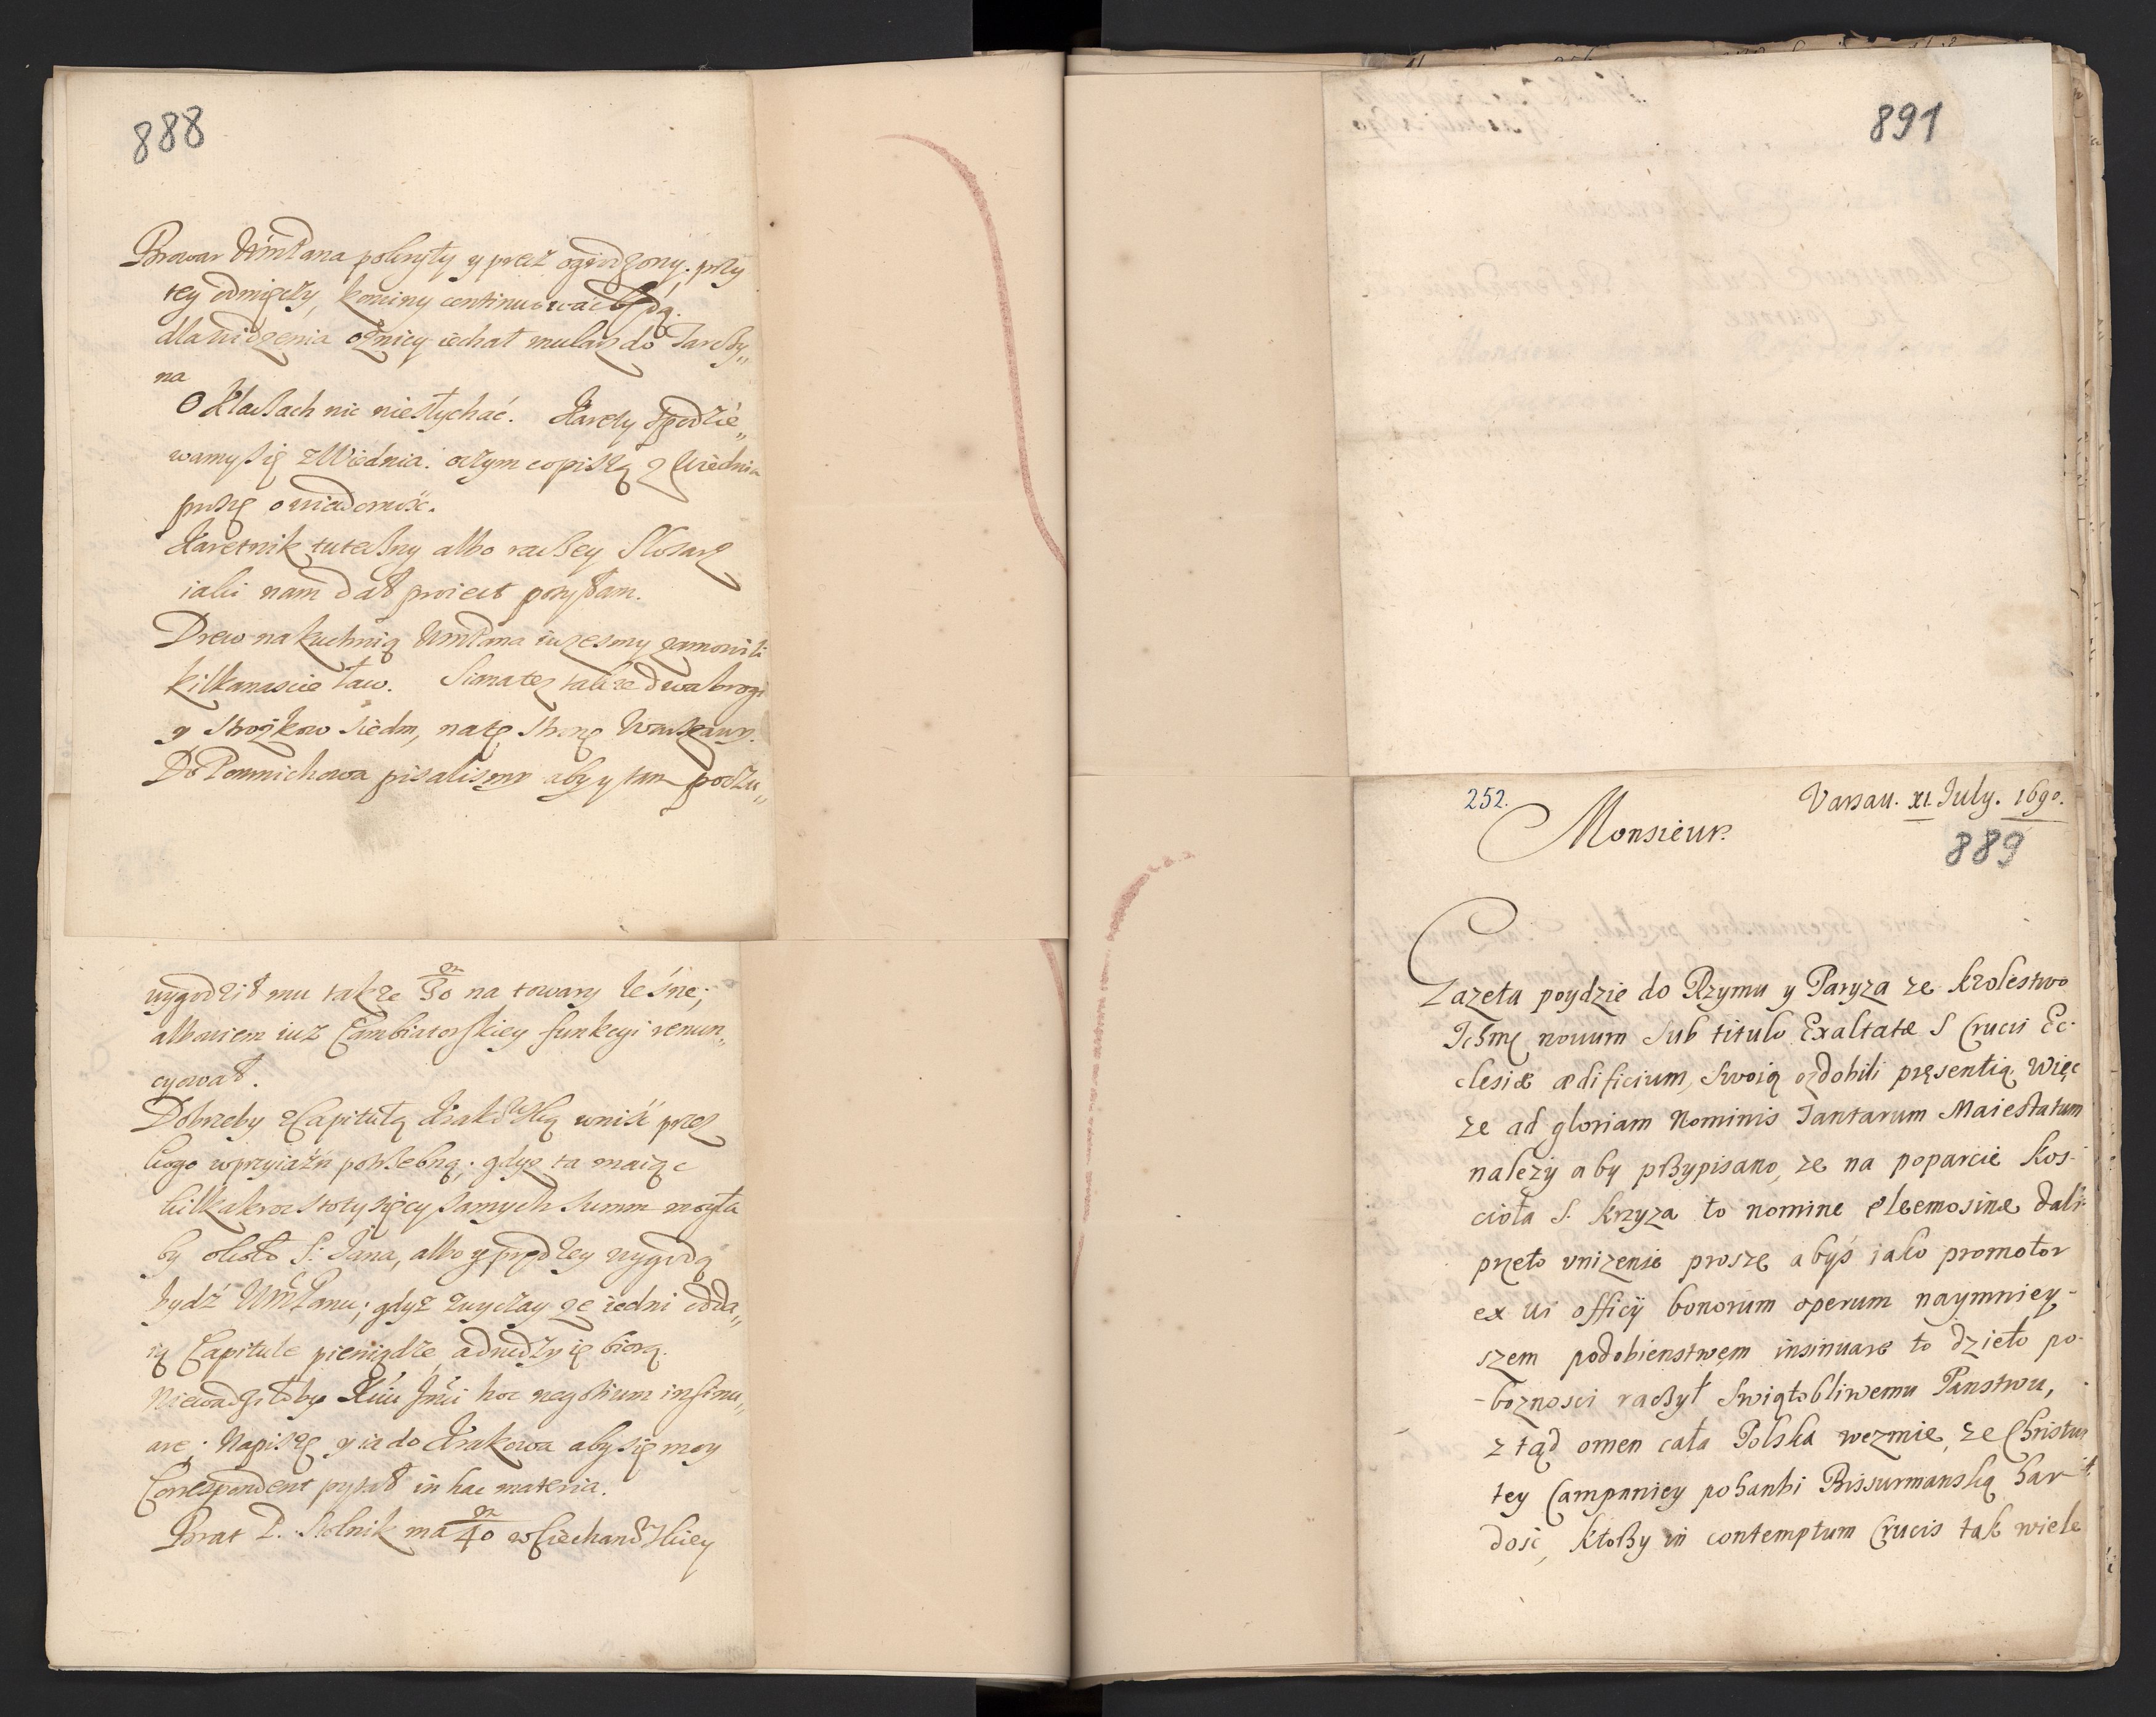 888
Browar WMPana pokryty y wręcz ogrodzony. przy
tey odmięczy, kominy continuować będą.
dla widzenia oznicy iechał mularz do Tarchy„
na
O Klassach nic niesłychać. Karety spodzie„
wamy się z Wiednia. oczym co piszą z Wiednia
proszę o wiadomość.
Karetnik tuteszny albo raczey Slosarz
iaki nam dał proiect posyłam.
Drew na kuchnią WMPana iuzesmy zamowili
kilkanascie ław. Siana tez także dwa brogi
y Strożkow siedm, na tę stronę Warszawy.
Do Pomnichowa pisalismy aby y tam podzu„
wygodził mu takze 30 na towary leśne;
albowiem iuż Cambiatorskiey funkcyi renun„
cyował.
Dobrzeby z Capitułą Krakowską wniść przez
kogo w przyiaźń potrzebną; gdyz ta maiąc
kilkakroc stotysięcy samych Summ mogła
by około S: Jana, albo y prędzey wygodą
bydź WMPanu; gdyż zwyczay ze iedni odda„
ią Capitule pieniądze, a drudzy ie biorą.
Niewadziłoby Xciu Jmci hoc negotium insinu„
are; Napiszę y ia do Krakowa aby się moy
Correspondent pytał in hac materia.
Brat P. Stolnik ma 40 w Ciechanowskiey
891
252. Varsau. XI. July. 1690.
Monsieur.
889
Gazeta poydzie do Rzymu y Paryza ze krolestwo
Ichmę nouum sub titulo Exaltatæ S Crucis Ec-
clesiæ ædificium, swoią ozdobili pręsentią Więc
ze ad gloriam Nominis Tantarum Maiestatum
należy aby przypisano, ze na poparcie Kos-
cioła S. krzyza to nomine eleemosinæ dali
przeto vnizenie proszę abyś iako promotor
ex ui officij bonorum operum naymniey-
szem podobienstwem insinuare to dzieło po-
-boznosci raczył Swiątobliwemu Panstwu,
z tąd omen cała Polska wezmie, ze Christus
tey Campaniey pohanbi Bissurmanską har-
dość, ktorzy in contemptum Crucis tak wiele